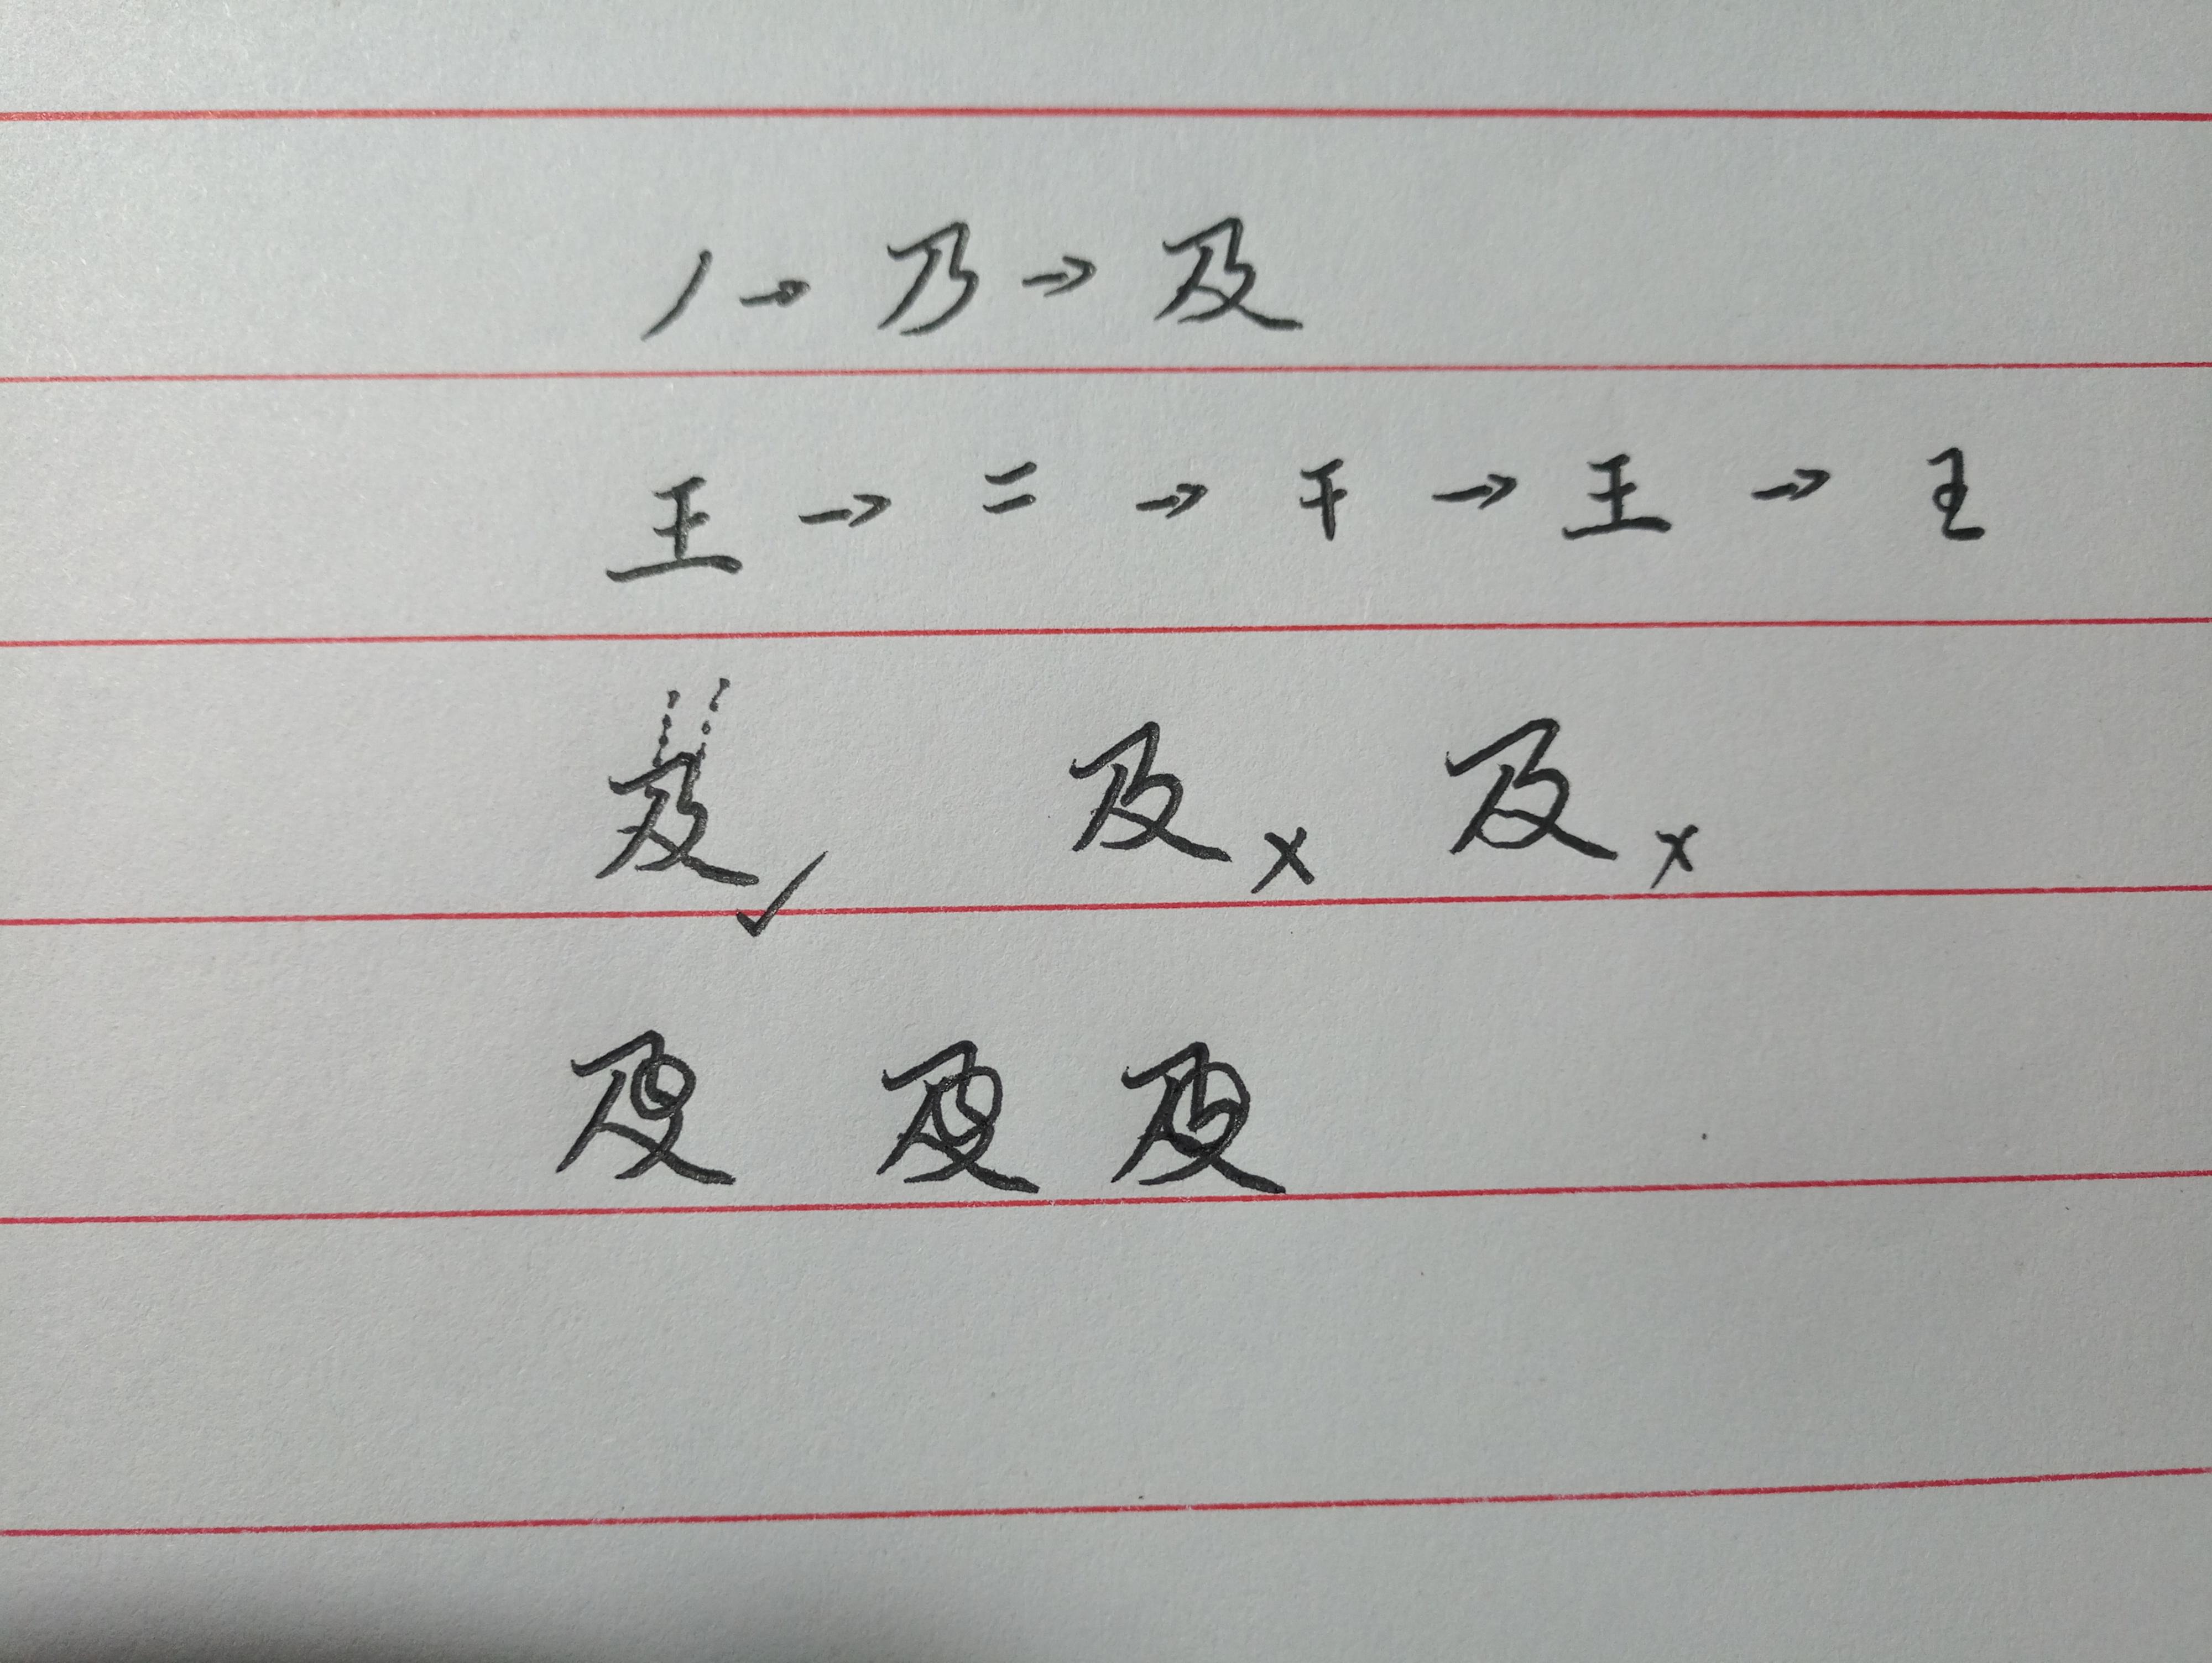 丿→乃→及
王→二→干→王→王
及✓ 及× 及×
及 及 及